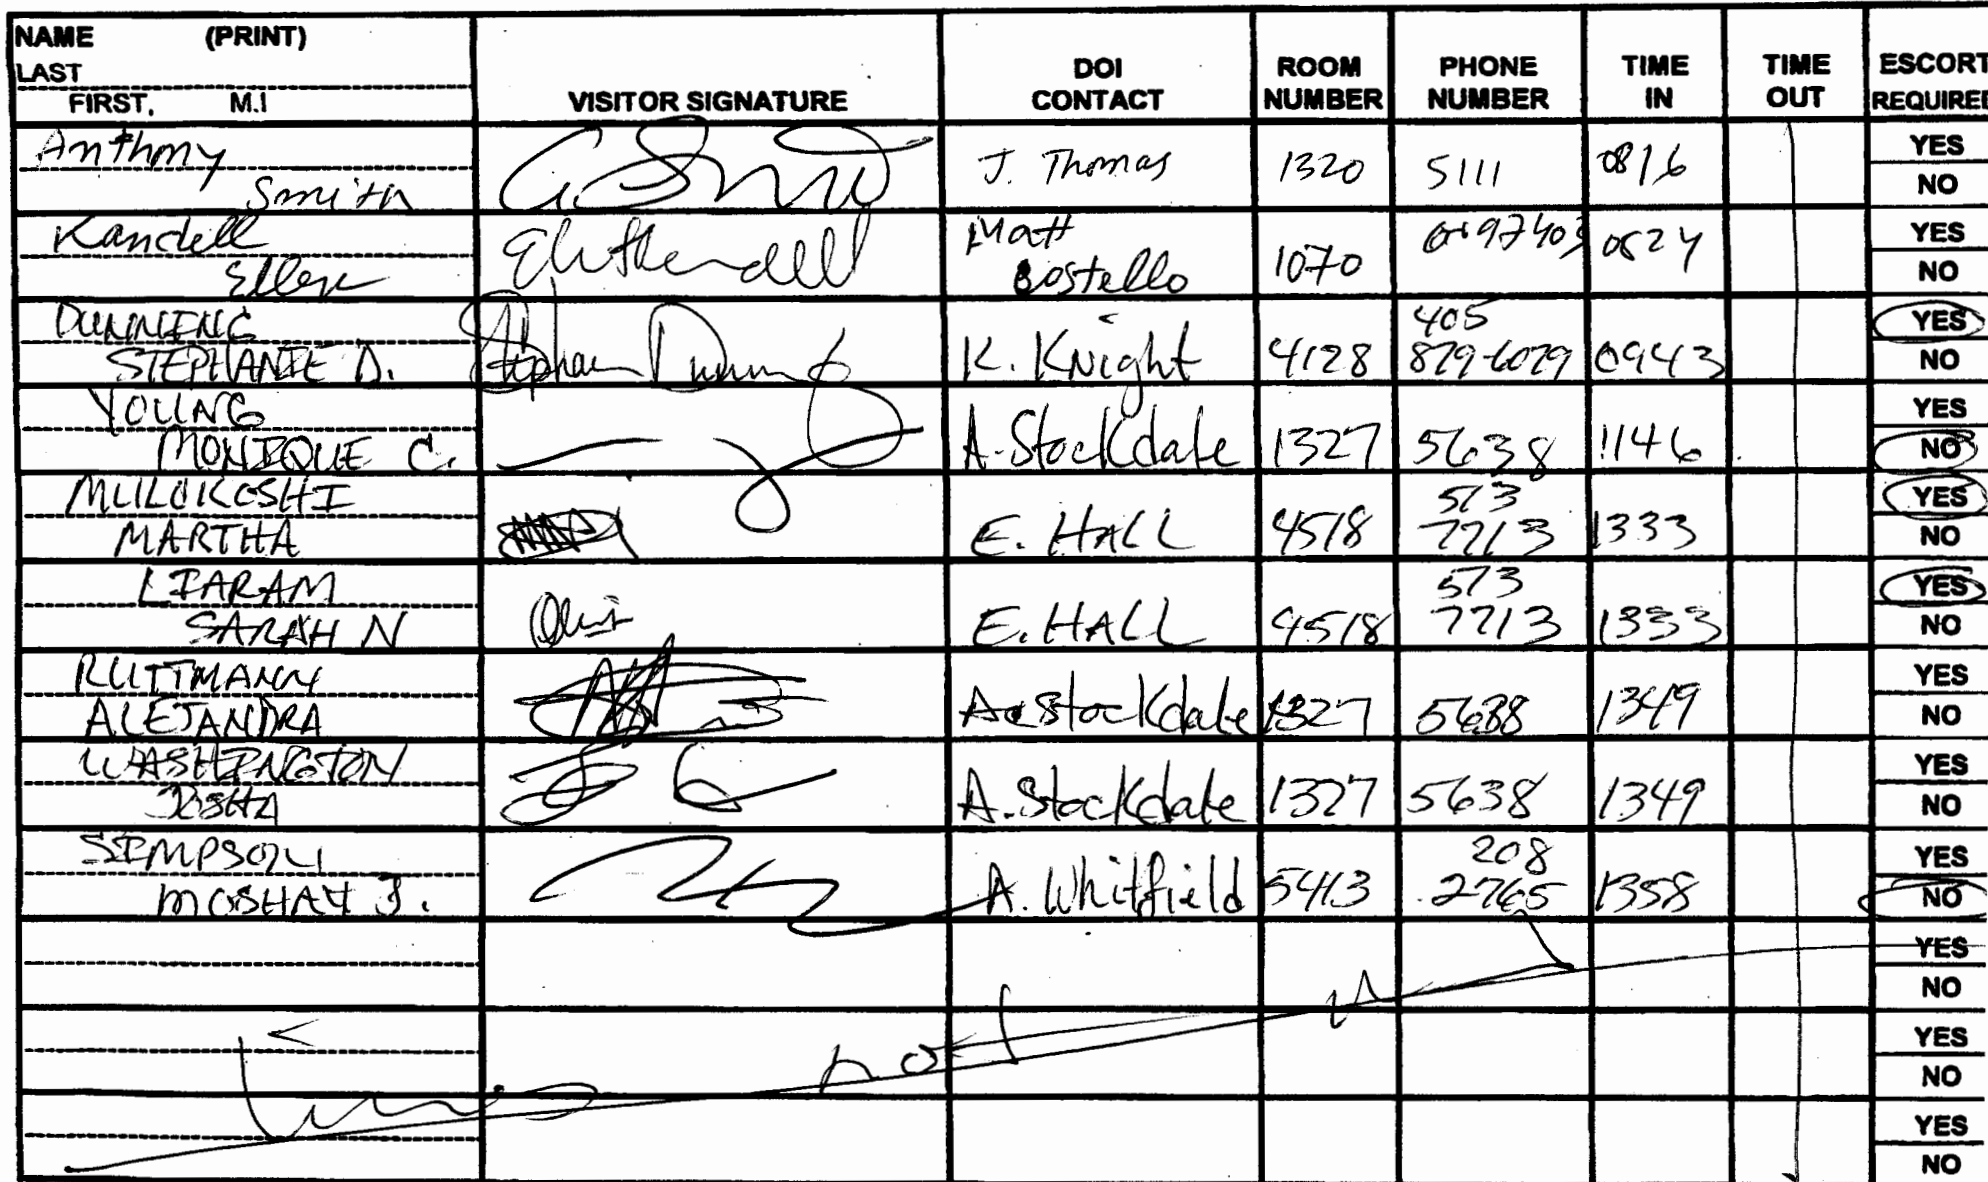 NAME (PRINT)
LAST
FIRST, M.I
VISITOR SIGNATURE
DOI
CONTACT
ROOM
NUMBER
PHONE
NUMBER
TIME
IN
TIME
OUT
ESCORT
REQUIRED
Anthony
Smith
J. Thomas 1320 5111 0816
YES
NO
Kandell
Ellen
Matt
Costello
1070 0824
YES
NO
DUNNING
STEPHANIE D.
K. Knight 4128
405
879-6079 0943
YES
NO
YOUNG
MONIQUE C.
A. Stockdale 1327 5638 1146
YES
NO
MULOKOSHI
MARTHA
E. HALL 4518
513
7713 1333
YES
NO
LIARAM
SARAH N
E. HALL 4518
513
7713 1333
YES
NO
RUTTMANN
ALEJANDRA
A. Stockdale 1327 5638 1349
YES
NO
WASHINGTON
A. Stockdale 1327 5638 1349
YES
NO
SIMPSON
MOSHAY J.
A. Whitfield 5413
208
2765 1358
YES
NO
YES
NO
not
YES
NO
YES
NO